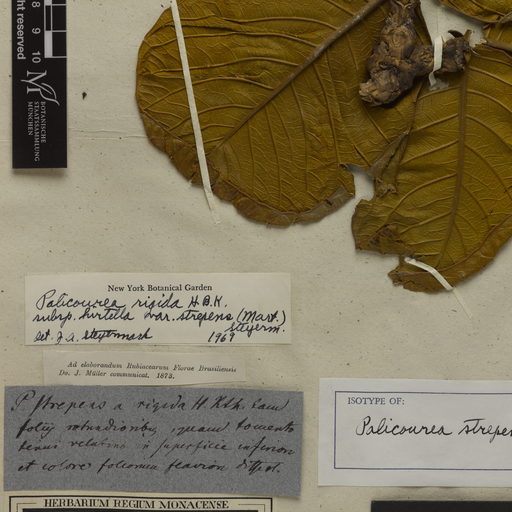 ght reserved
8 9 10
BOTANISCHE
STAATSSAMMLUNG
MÜNCHEN
New York Botanical Garden
Palicourea rigida H.B.K.
subsp. hirtella var. strepens (Mart.)
Steyerm.
det. J.A. Steyermark 1969
Ad elaborandum Rubiacearum Florae Brasiliensis
Do. J. Müller communicat. 1873.
P. strepens a rigida H. Kth. tam
foliis rotundioribus, quam tomento
tenui in superficie inferiori
et colore foliorum
ISOTYPE OF:
Palicourea strepen
HERBARIUM REGIUM MONACENSE